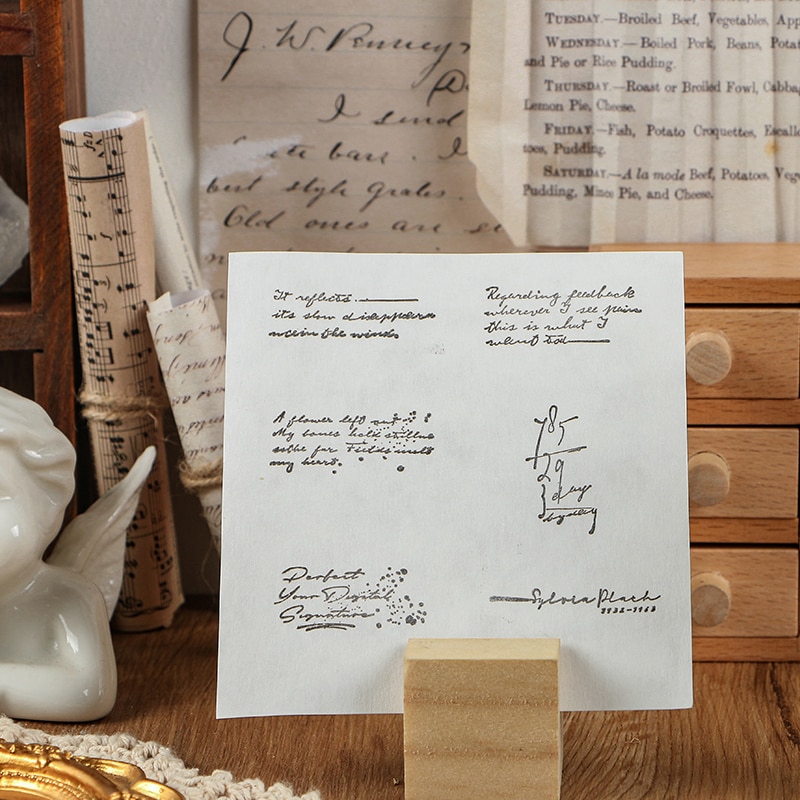 J. W. Penney
I send
best style grates.
Old ones are
TUESDAY.—Broiled Beef, Vegetables, App
WEDNESDAY.—Boiled Pork, Beans, Potat
and Pie or Rice Pudding.
THURSDAY.—Roast or Broiled Fowl, Cabbag
Lemon Pie, Cheese.
FRIDAY.—Fish, Potato Croquettes, Escallo
toes, Pudding.
SATURDAY.—A la mode Beef, Potatoes, Vege
Pudding, Mince Pie, and Cheese.
It reflects.
its slow disappeara
nce in the winds
Regarding feedback
wherever I see pains
this is what I
A flower left out
My bones hold stillne
ss the far Fields melt
my heart.
785
29
day
by day
Perfect
Your Digital
Signature
Sylvia Plath
1932-1963